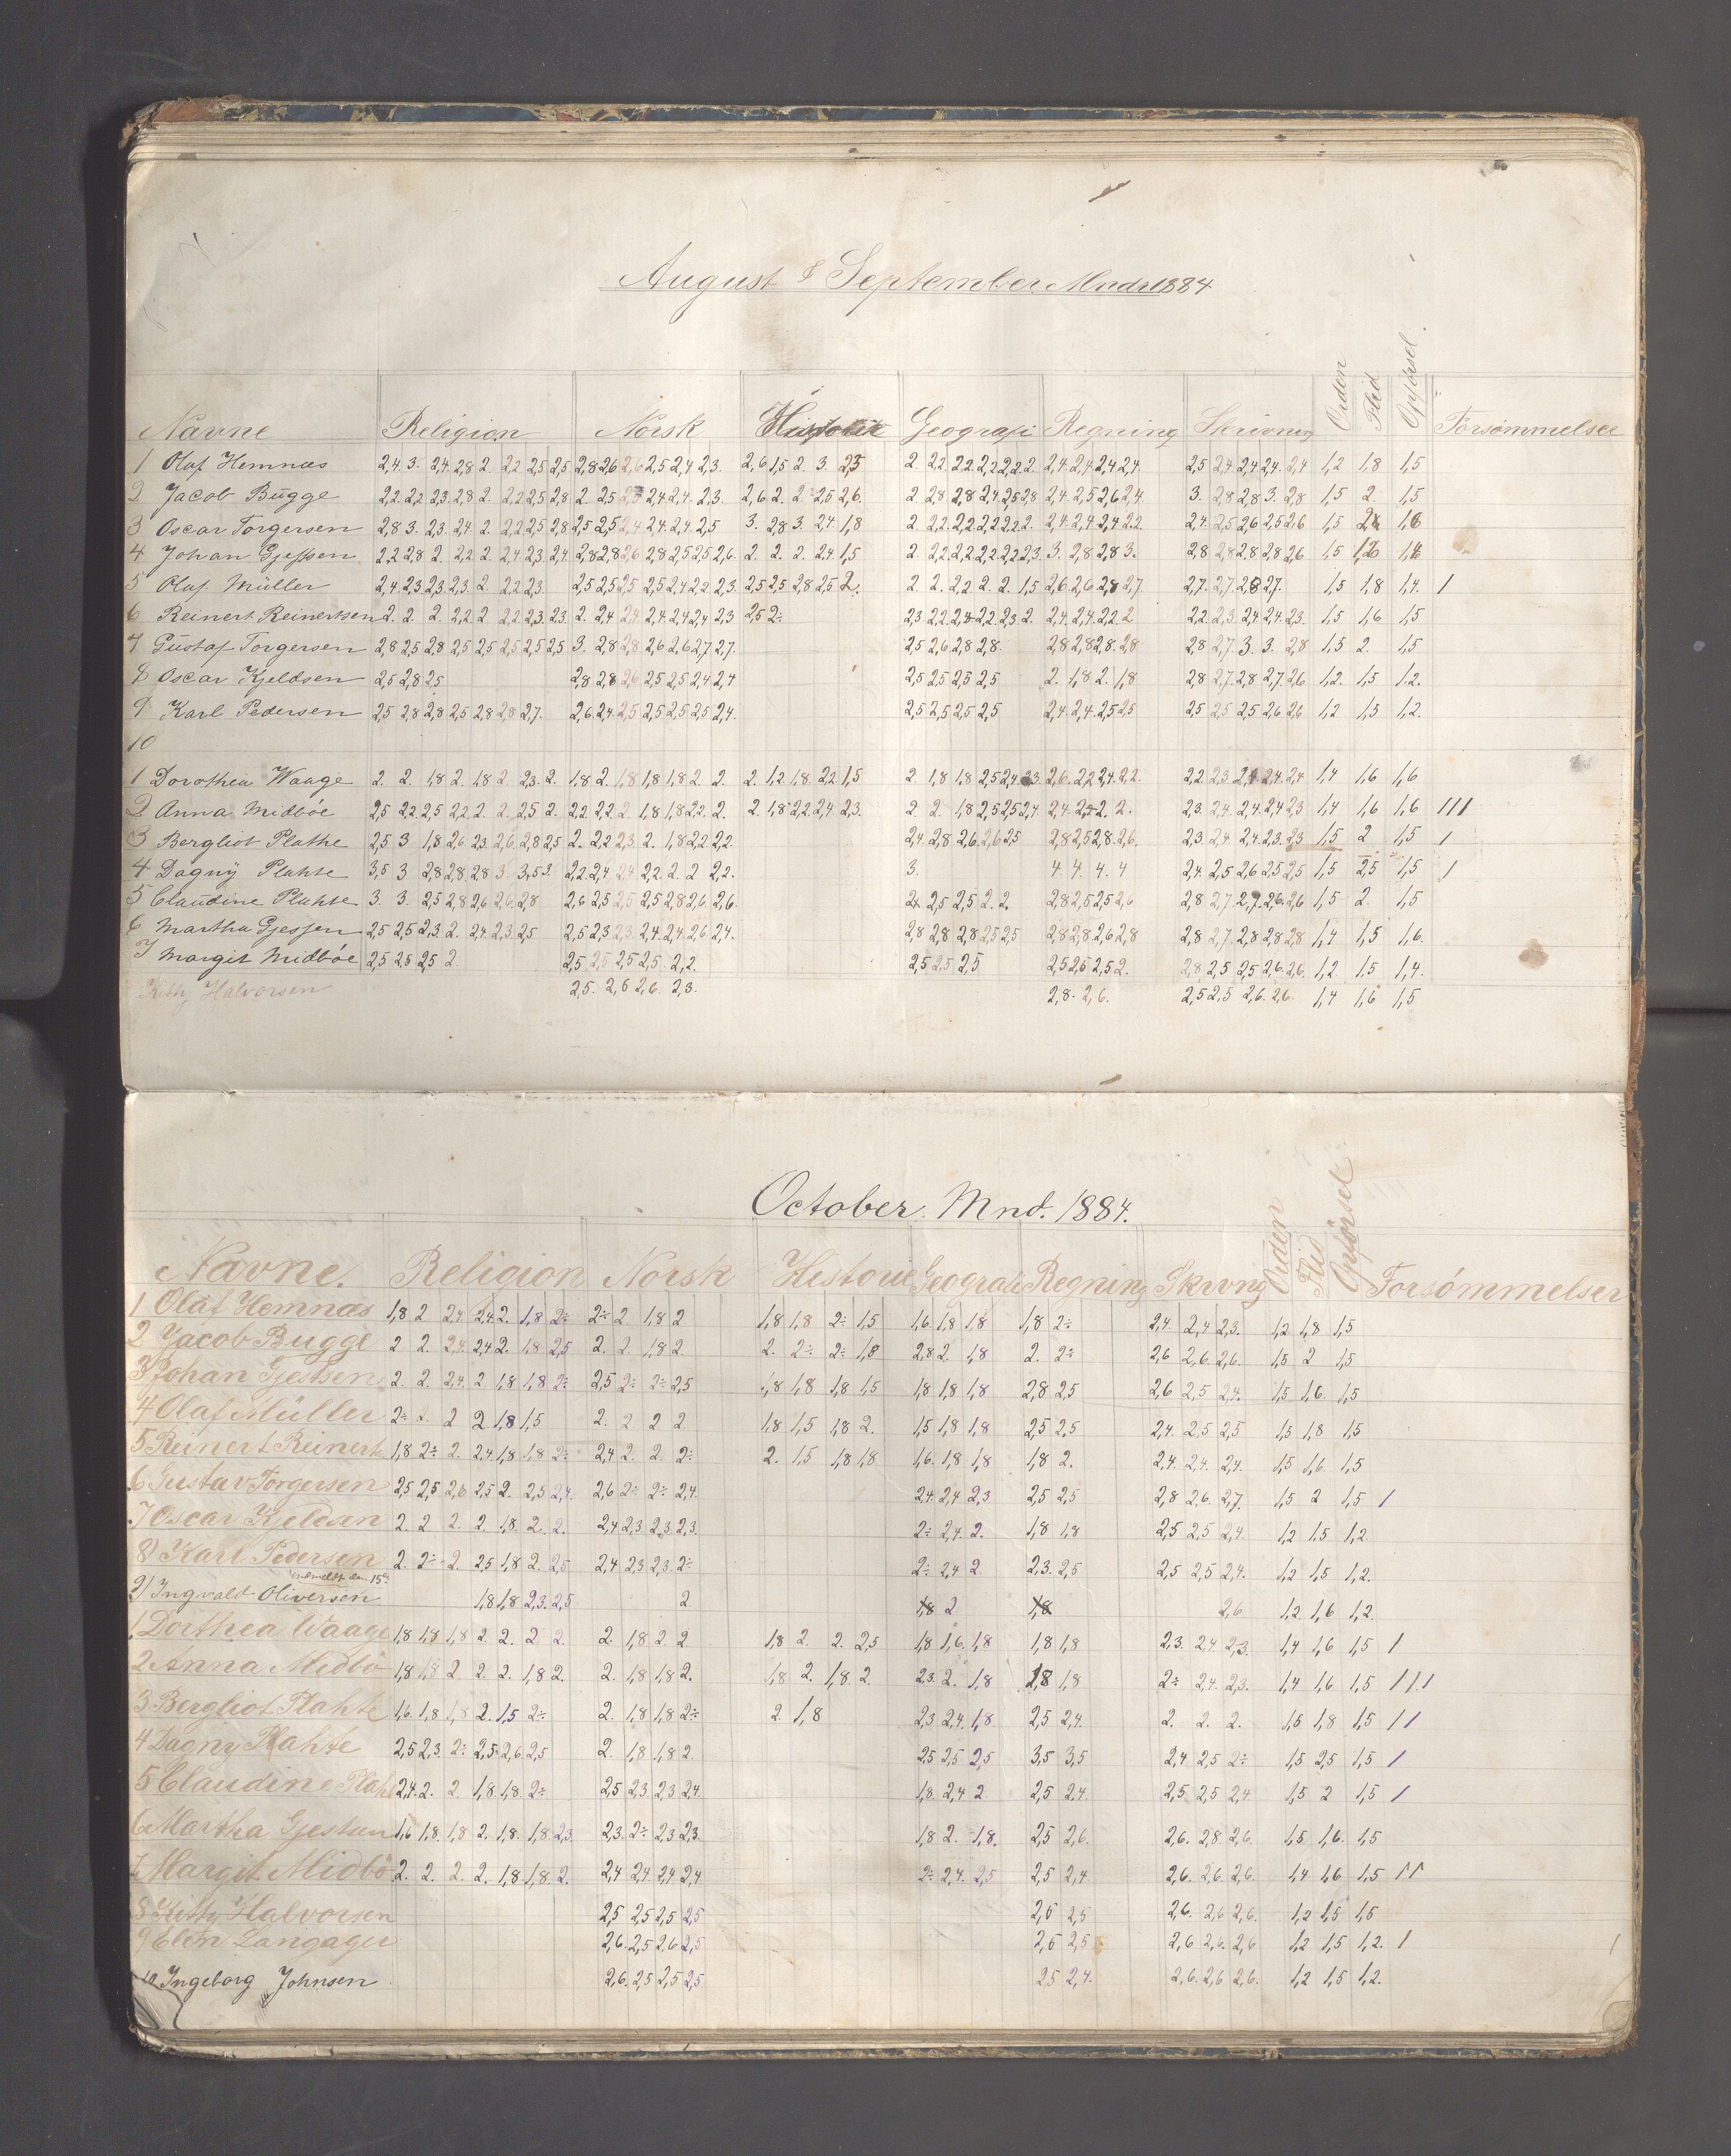 August & September Mndr 1884
Navne Religion Norsk Historie Geografi Regning Skrivning Orden Flid Opførsel Forsømmelser
1 Olaf Hemnæs 2,4. 3. 2,4. 2,8 2. 2,2 2,5 2,5 2,8 2,6 2,6 2,5 2,4 2,3. 2,6 1,5 2. 3. 2,5 2. 2,2. 2,2. 2,2 2,2 2. 2,4. 2,4. 2,4 2,4. 2,5 2,4. 2,4 2,4. 2,4 1,2 1,8 1,5
2 Jacob Bugge 2,2 2,2 2,3 2,8 2. 2,2 2,5 2,8 2. 2,5 2,4 2,4. 2,3. 2,6 2. 2. 2,5 2,6. 2 2,8 2,8 2,4. 2,5 2,8 2,4. 2,5 2,6 2,4. 3. 2,8 2,8 3. 2,8 1,5 2. 1,5
3 Oscar Torgersen 2,8 3. 2,3. 2,4. 2. 2,2 2,5 2,8 2,5 2,5 2,4 2,4. 2,4 2,5 3. 2,8 3. 2,4. 1,8 2. 2,2. 2,2 2,2 2,2 2. 2,4. 2,4. 2,4 2,2. 2,4. 2,5 2,6 2,5 2,6 1,5
4 Johan Gjessen 2,2 2,8 2. 2,2 2. 2,4 2,3. 2,4. 2,8 2,8 2,6 2,8 2,5 2,5 2,6. 2. 2. 2. 2,4. 1,5 2. 2,2 2,2 2,2 2,2 2,3. 3. 2,8 2,8 3. 2,8 2,8 2,8 2,8 2,6 1,5
5 Olaf Müller 2,4. 2,3. 2,3. 2,3. 2. 2,2 2,3. 2,5 2,5 2,5 2,5 2,4 2,2 2,3. 2,5 2,5 2,8 2,5 2. 2 2. 2,2. 2. 2. 1,5 2,6 2,6. 2,8 2,7. 2,7. 2,7. 2,8 2,7. 1,5 1,8 1,4. 1
6 Reinert Reinertsen 2. 2. 2. 2,2 2 2,2 2,3. 2,3. 2. 2,4 2,4 2,4 2,4 2,4 2,3 2,5 2÷ 2,3 2,2 2,4 2,2. 2,3 2. 2,4. 2,4. 2,2 2 2,2 2,3 2,4 2,4. 2,3. 1,5 1,6 1,5
7 Gustaf Torgersen 2,8 2,5 2,8 2,5 2,5 2,5 2,5 2,5 3. 2,8 2,8 2,6 2,6 2,7 2,7. 2,5 2,6 2,8 2,8. 2,8 2,8 2,8. 2,8 2,8 2,7. 3. 3. 2,8 1,5 2. 1,5
8 Oscar Kjeldsen 2,5 2,8 2,5 2,8 2,8 2,6 2,5 2,5 2,4 2,4 2,5 2,5 2,5 2,5 2. 1,8 2. 1,8 2,8 2,7. 2,8 2,7. 2,6 1,2. 1,5 1,2.
9 Karl Pedersen 2,5 2,8 2,8 2,5 2,8 2,8 2,7. 2,6 2,4. 2,5 2,5 2,5 2,5 2,4. 2,5 2,5 2,5 2,5 2,4. 2,4. 2,5 2,5 2,5 2,5 2,5 2,6 2,6 1,2 1,5 1,2.
10
1 Dorothea Waage 2. 2. 1,8 2. 1,8 2. 2,3. 2. 1,8 2. 1,8 1,8 1,8 2. 2. 2. 1,2. 1,8. 2,2 1,5 2 1,8 1,8 2,5 2,4 2,3. 2,6. 2,2 2,4. 2,2. 2,2 2,3. 2,4 2,4. 2,4 1,4 1,6 1,6
2 Anna Midbøe 2,5 2,2. 2,5 2,2 2. 2. 2,5 2. 2,2 2,2 2 1,8 1,8 2,2. 2. 2. 1,8 2,2 2,4. 2,3. 2. 2. 1,8 2,5 2,5 2,4. 2,4. 2. 2. 2,3. 2,4. 2,4. 2,4 2,3 1,4 1,6 1,6 111
3 Bergliot Plathe 2,5 3 1,8 2,6. 2,3. 2,6. 2,8 2,5 2. 2,2 2,3. 2. 1,8 2,2 2,2. 2,4. 2,8 2,6. 2,6 2,5 2,8 2,5 2,8. 2,6. 2,3. 2,4. 2,4. 2,3. 2,3 1,5 2 1,5 1
4 Dagny Plahte 3,5 3 2,8 2,8. 2,8 3 3,5 3. 2,2 2,4 2,4 2,2. 2. 2 2,2. 3. 4. 4. 4. 4 2,4. 2,5 2,6 2,5 2,5 1,5 2,5 1,5 1
5 Claudine Plahte 3. 3. 2,5 2,8 2,6 2,6. 2,8 2,6 2,5 2,5 2,5 2,8 2,6. 2,6. 2,5 2,5 2. 2. 2,8 2,5 2,5 2,6 2,8 2,7. 2,7. 2,6. 2,6 1,5 2. 1,5
6 Martha Gjessen 2,5 2,5 2,3. 2. 2,4. 2,3. 2,5 2,5 2,3 2,3 2,4. 2,4. 2,6. 2,4. 2,8 2,8 2,8 2,5 2,5 2,8 2,8. 2,6 2,8 2,8 2,7. 2,8 2,8 2,8 1,4 1,5 1,6.
7 Margit Midbøe 2,5 2,5 2,5 2. 2,5 2,5 2,5 2,5. 2,2. 2,5 2,5 2,5 2,5 2,5 2,5 2. 2,8 2,5 2,5 2,6. 2,6. 1,2. 1,5 1,4.
Kitty Halvorsen 2,5. 2,6 2,6. 2,3. 2,8. 2,6. 2,5 2,5 2,6. 2,6. 1,4 1,6 1,5
October. Mnd. 1884.
Navne. Religion Norsk Historie Geografi Regning Skrvng Orden Flid Opførsel Forsømmelser
1 Olaf Hemnæs 1,8 2 2,4. 2,4 2. 1,8 2÷ 2÷ 2 1,8 2 1,8 1,8 2÷ 1,5 1,6. 1,8 1,8 1,8 2÷ 2,4. 2,4 2,3. 1,2 1,8 1,5
2 Jacob Bugge 2 2. 2,4. 2,4 2. 1,8 2,5 2. 2. 1,8 2. 2. 2÷ 2÷ 1,8 2,8 2. 1,8 2. 2÷ 2,6 2,6. 2,6. 1,5 2 1,5
3 Johan Gjessen 2. 2. 2,4. 2 1,8 1,8 2÷ 2,5 2÷ 2÷ 2,5 1,8 1,8 1,8 1,5 1,8 1,8 1,8 2,8 2,5 2,6 2,5 2,4. 1,5 1,6. 1,5
4 Olaf Müller 2÷ 2. 2 2 1,8 1,5 2. 2 2 2 1,8 1,5 1,8 2. 1,5 1,8 1,8 2,5 2,5 2,4. 2,5 2,5 1,5 1,8 1,5
5 Reinert Reinerts 1,8 2÷ 2. 2,4 1,8 1,8 2÷ 2,4 2. 2. 2÷ 2. 1,5 1,8 1,8 1,6. 1,8 1,8 1,8 2. 2,4. 2,4. 2,4. 1,5 1,6. 1,5
6 Gustav Torgersen 2,5 2,5 2,6 2,5 2. 2,3 2,4. 2,6 2÷ 2÷ 2,4. 2,4. 2,4 2,3 2,5 2,5 2,8 2,6. 2,7. 1,5 2 1,5 1
7 Oscar Kjeldsen 2. 2 2. 2. 1,8. 2. 2. 2,4 2,3. 2,3. 2,3. 2÷ 2,4. 2. 1,8 1,8 2,5 2,5 2,4. 1,2 1,5 1,2.
8) Karl Pedersen 2. 2÷ 2. 2,5 1,8 2. 2,5 2,4 2,3 2,3. 2÷ 2÷ 2,4 2 2,3. 2,5 2,5 2,5 2,4. 1,2 1,5 1,2.
indmeldt den 15de
9) Ingvald Oliversen 1,8 1,8 2,3. 2,5 2 1,8 2 1,8 2,6 1,2. 1,6 1,2.
1 Dorthea Waage 1,8 1,8 1,8 2. 2. 2 2. 2. 1,8 2. 2 1,8 2. 2. 2,5 1,8 1,6. 1,8 1,8 1,8 2,3. 2,4. 2,3. 1,4 1,6 1,5 1
2 Anna Midbö 1,8 1,8 2 2. 2. 1,8 2. 2. 1,8 1,8 2. 1,8 2. 1,8. 2. 2,3. 2. 1,8 1,8 1,8 2÷ 2,4. 2,3. 1,4 1,6 1,5 111
3 Bergliot Plahte 1,6. 1,8 1,8 2. 1,5 2÷ 2. 1,8 1,8 2÷ 2. 1,8 2,3 2,4. 1,8. 2,5 2,4. 2. 2. 2. 1,5 1,8 1,5 11
4 Dagny Plahte 2,5 2,3. 2÷ 2,5 2,6. 2,5 2. 1,8 1,8 2. 2,5 2,5 2,5 3,5 3,5 2,4 2,5 2÷ 1,5 2,5 1,5 1
5 Claudine Plaht 2,4. 2. 2. 1,8. 1,8. 2÷ 2,5 2,3. 2,3 2,4. 1,8. 2,4 2 2,5 2,4. 2,5. 2,5 2,4 1,5 2 1,5 1
6 Martha Gjessen 1,6 1,8. 1,8 2. 1,8. 1,8. 2,3. 2,3. 2÷ 2,3 2,3. 1,8 2. 1,8. 2,5 2,6. 2,6. 2,8 2,6. 1,5 1,6. 1,5
7 Margit Midbö 2. 2. 2. 2. 1,8 1,8. 2. 2,4 2,4. 2,4 2,4 2÷ 2,4. 2,5 2,5 2,4 2,6. 2,6. 2,6. 1,4 1,6 1,5 11
8 Kitty Halvorsen 2,5 2,5 2,5 2,5 2,5 2,5 2,6. 2,6 2,6. 1,2 1,5 1,5
9 Elen Langager 2,6. 2,5 2,6 2,5 2,5 2,5 2,6 2,6. 2,6 1,2 1,5 1,2. 1
10 Ingeborg Johnsen 2,6. 2,5 2,5 2,5 2,5 2,4. 2,6. 2,6 2,6. 1,2 1,5 1,2.